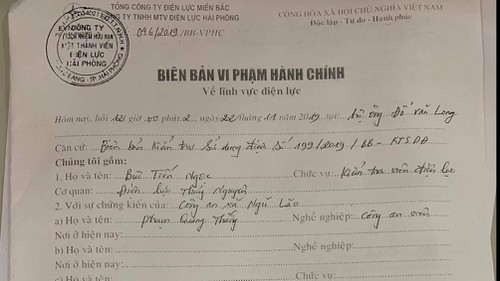 TỔNG CÔNG TY ĐIỆN LỰC MIỀN BẮC
CÔNG TY TNHH MTV ĐIỆN LỰC HẢI PHÒNG
096/2019/BB-VPHC
CỘNG HÒA XÃ HỘI CHỦ NGHĨA VIỆT NAM
Độc lập - Tự do - Hạnh phúc
CÔNG TY
TRÁCH NHIỆM HỮU HẠN
MỘT THÀNH VIÊN
ĐIỆN LỰC
HẢI PHÒNG
BIÊN BẢN VI PHẠM HÀNH CHÍNH
Về lĩnh vực điện lực
Hôm nay, hồi giờ 00 phút, ngày 22 tháng 11 năm 2019 tại: hộ ông Đỗ Văn Long
Căn cứ: Biên bản kiểm tra sử dụng điện số 199/2019/BB-KTSDĐ
Chúng tôi gồm:
1. Họ và tên: Bùi Tiến Ngọc Chức vụ: Kiểm tra viên điện lực
Cơ quan: Điện lực Thủy Nguyên
2. Với sự chứng kiến của: Công an xã Ngũ Lão
a) Họ và tên: Phạm Quang Thắng Nghề nghiệp: Công an viên
Nơi ở hiện nay:
b) Họ và tên: Nghề nghiệp:
Nơi ở hiện nay:
c) Họ và tên: Chức vụ: